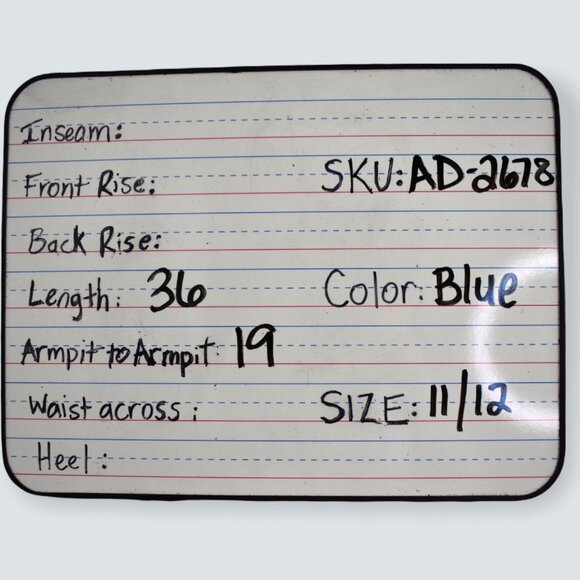 Inseam:
Front Rise:
SKU: AD-2678
Back Rise:
Length: 36
Color: Blue
Armpit to Armpit 19
Waist across:
SIZE: 11/12
Heel: